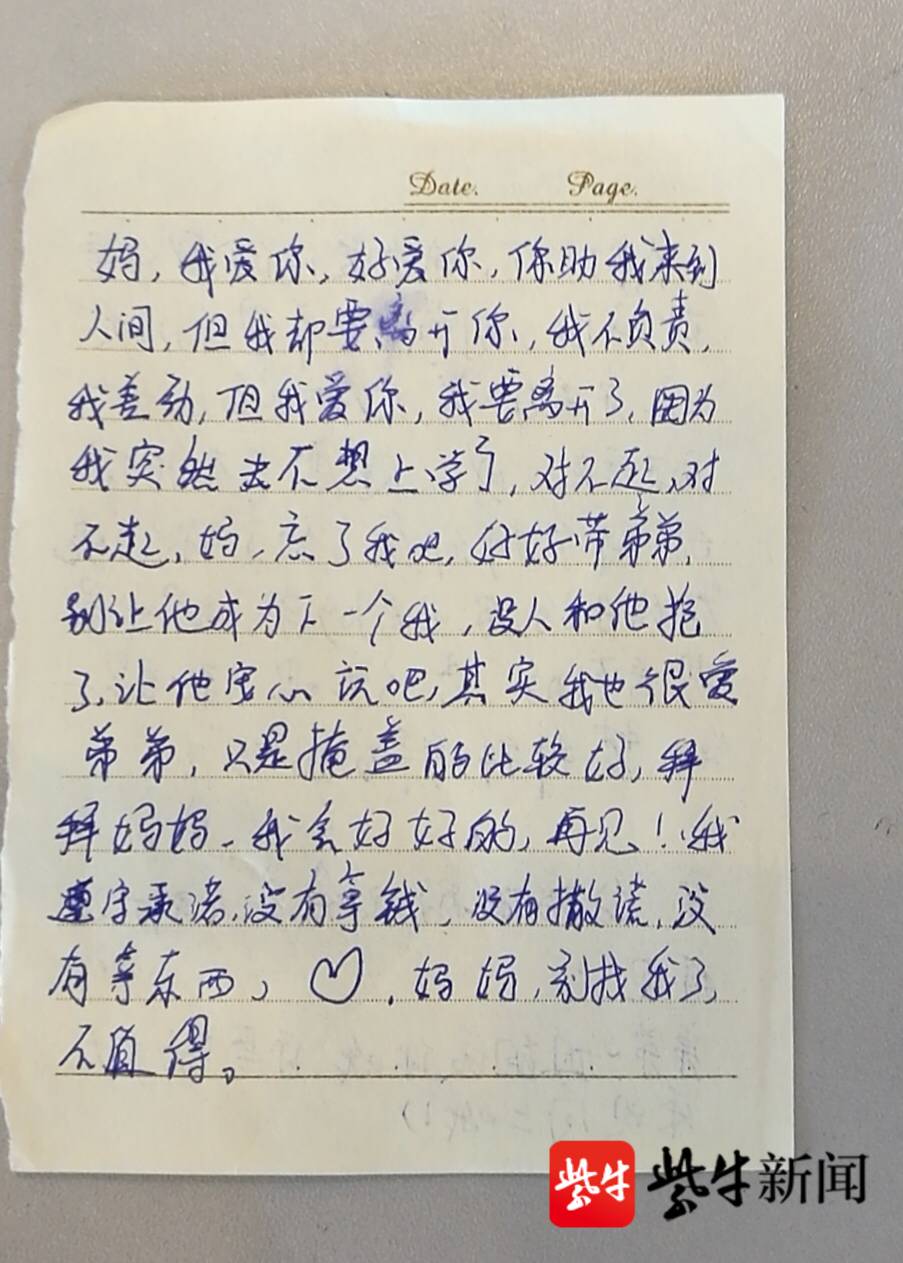 Date. Page.
妈，我爱你，好爱你，你助我来到
人间，但我却要离开你，我不负责，
我差劲，但我爱你，我要离开了，因为
我突然去不想上学了，对不起，对
不起，妈，忘了我吧，好好带弟弟，
别让他成为下一个我，没人和他抢
了，让他安心玩吧，其实我也很爱
弟弟，只是掩盖的比较好，拜
拜妈妈，我会好好的，再见！我
遵守承诺，没有拿钱，没有撒谎，没
有拿东西，♡，妈妈，别找我了，
不值得。
紫牛
紫牛新闻